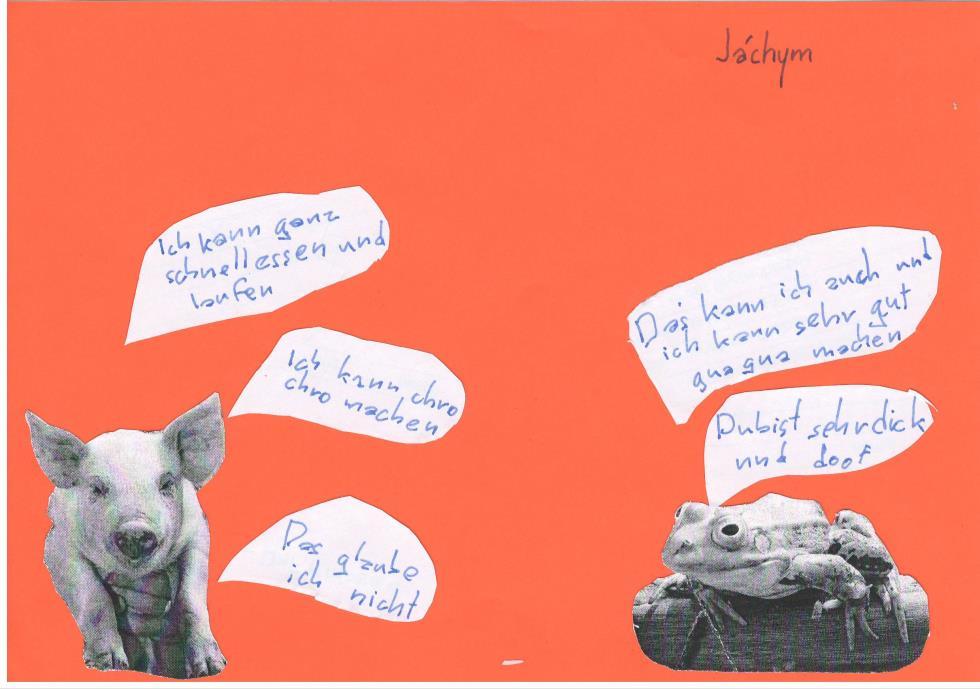 Jáchym
Ich kann ganz
schnell essen und
laufen
Ich kann chro
chro machen
Das glaube
ich nicht
Das kann ich auch und
ich kann sehr gut
qua qua machen
Du bist sehr dick
und doof